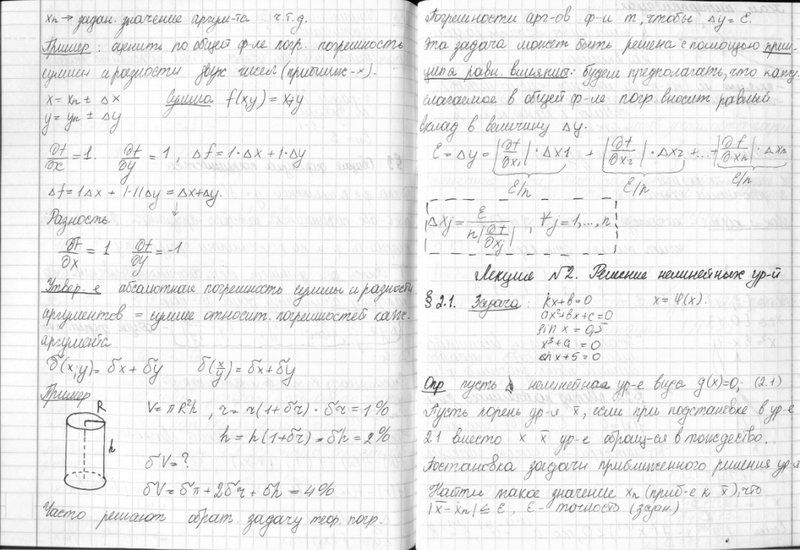 xn → задан. значение аргум-та ч.т.д.
Пример: оценить по общей ф-ле погр. погрешность
суммы и разности двух чисел (приближ-х).
x = xn ± Δx Сумма f(xy) = x+y
y = yn ± Δy
∂f/∂x = 1. ∂f/∂y = 1, Δf = 1·Δx + 1·Δy
Δf = 1Δx + |·1|Δy = Δx+Δy.
Разность
∂f/∂x = 1 ∂f/∂y = -1
Утвер-е абсолютная погрешность суммы и разности
аргументов = сумме относит. погрешностей кажд.
аргумента
δ(x·y) = δx + δy δ(x/y) = δx + δy
Пример
R
h
V = πR²h, r = r(1+δr) · δr = 1%
h = h(1+δr) = δh = 2%
δV = ?
δV = δπ + 2δr + δh = 4%
Часто решают обрат. задачу теор. погр.
Погрешности арг-ов ф-и т, чтобы Δy = ε.
Эта задача может быть решена с помощью прин-
ципа равн. влияния: будем предполагать, что кажд
слагаемое в общей ф-ле погр вносит равный
вклад в величину Δy.
ε = Δy = |∂f/∂x1| · Δx1 + |∂f/∂x2| · Δx2 + ... + |∂f/∂xn| · Δxn
ε/n ε/n ε/n
Δxj = ε / n|∂f/∂xj| , ∀j = 1,...,n
Лекция №2. Решение нелинейных ур-й
§2.1. Задача: kx+b=0 x = φ(x).
ax²+bx+c=0
sin x = 0,5
x³+a=0
x+5=0
Опр пусть нелинейная ур-е вида g(x)=0; (2.1)
Пусть корень ур-я x̄, если при подстановке в ур-е
2.1 вместо x x̄ ур-е обращ-ся в тождество.
Постановка задачи приближенного решения ур-я
Найти такое значение xn (приб-е к x̄), что
|x̄ - xn| ≤ ε, ε - точность (задан)